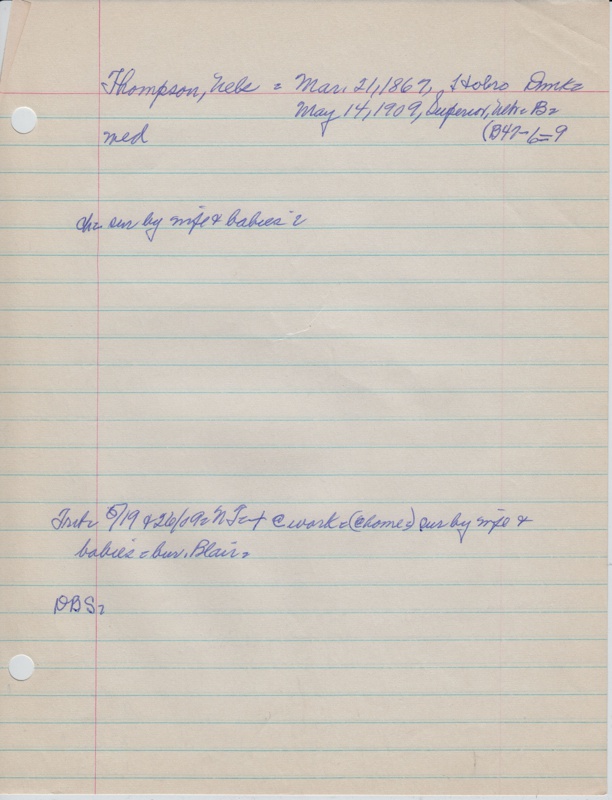 Thompson, Nels = Mar. 21, 1867, Hobro Dmk=
May 14, 1909, Superior, Neb= B=
med (B47-6=9
ch= sur by wife & babies =
Trib= 5/19 & 26/09= N T=+ @ work=(@ home=) sur by wife &
babies = bur. Blair=
DBS=